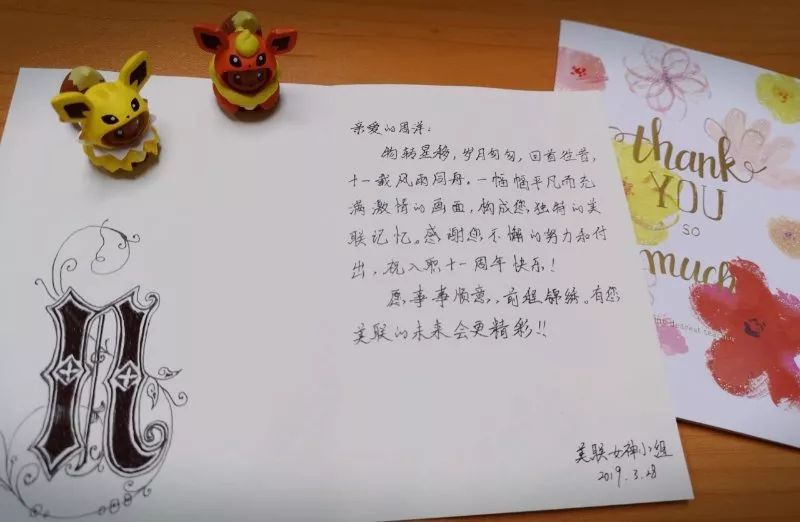 亲爱的周洋:
物转星移,岁月匆匆,回首往昔,
十一载风雨同舟。一幅幅平凡而充
满激情的画面,构成您独特的美
联记忆。感谢您不懈的努力和付
出,祝入职十一周年快乐!
愿事事顺意,前程锦绣。有您
美联的未来会更精彩!!
美联女神小组
2019.3.28
thank
YOU
so
much